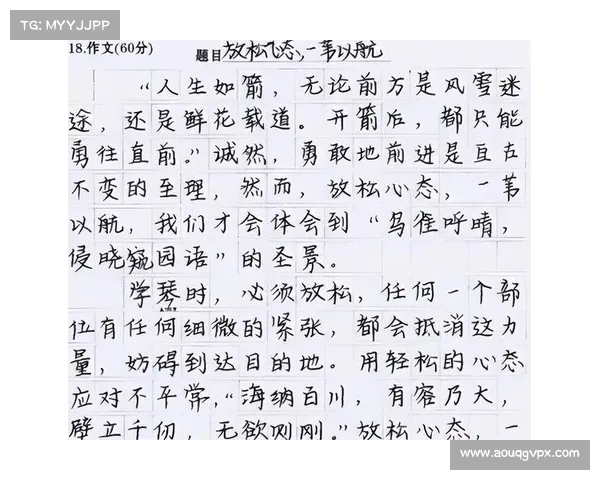 TG: MYYJJPP
18.作文(60分) 题目 放松心态,一苇以航
“人生如箭，无论前方是风雪迷
途，还是鲜花载道。开箭后，都只能
勇往直前。”诚然，勇敢地前进是亘古
不变的至理，然而，放松心态，一苇
以航，我们才会体会到“鸟雀呼晴，
侵晓窥园语”的圣景。
学琴时，必须放松，任何一个部
位有任何细微的紧张，都会抵消这力
量，妨碍到达目的地。用轻松的心态
应对不平常，“海纳百川，有容乃大，
壁立千仞，无欲则刚。”放松心态，一
www.aouqgvpx.com